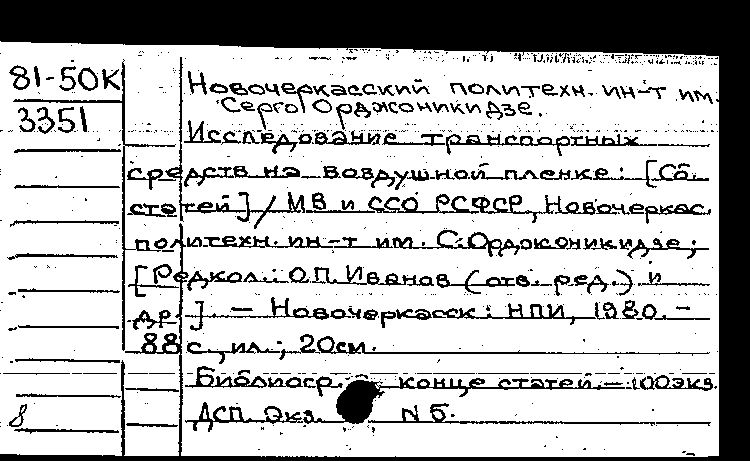 81-50К
3351
Новочеркасский политехн. ин-т им.
Серго Орджоникидзе.
Исследование транспортных
средств на воздушной пленке: [Сб.
статей] / МВ и ССО РСФСР, Новочеркас.
политехн. ин-т им. С. Орджоникидзе;
[Редкол.: О.П. Иванов (отв. ред.) и
др.]. — Новочеркасск: НПИ, 1980. —
88 с., ил.; 20см.
Библиогр. в конце статей. — 100экз.
8 ДСП. Экз. N 5.